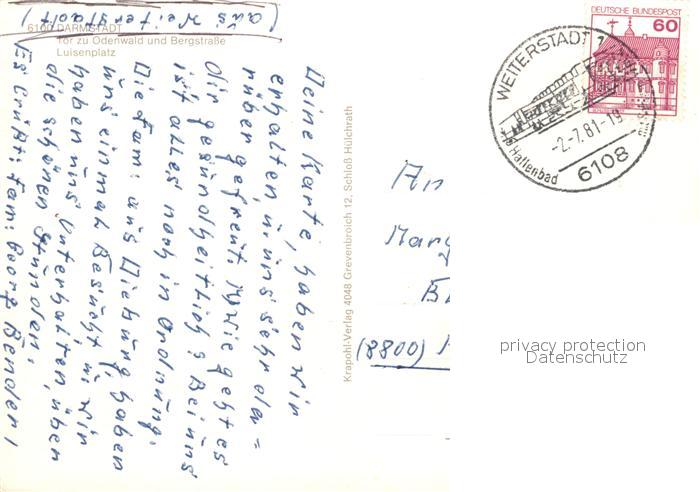 (aus Weiterstadt)
6100 DARMSTADT
Tor zu Odenwald und Bergstraße
Luisenplatz
Deine Karte, haben wir
erhalten, u. uns sehr da=
rüber gefreut. Wie geht es
dir gesundheitlich? Bei uns
ist alles noch in Ordnung.
Die Fam: aus Dieburg haben
uns einmal Besucht u. wir
haben uns Unterhalten, über
die schönen Stunden.
Es Grüßt: Fam: Georg Bender!
Krapohl-Verlag 4048 Grevenbroich 12, Schloß Hülchrath
DEUTSCHE BUNDESPOST
60
WEITERSTADT 1
-2.-7.81-19
Hallenbad
6108
An
(8800)
privacy protection
Datenschutz